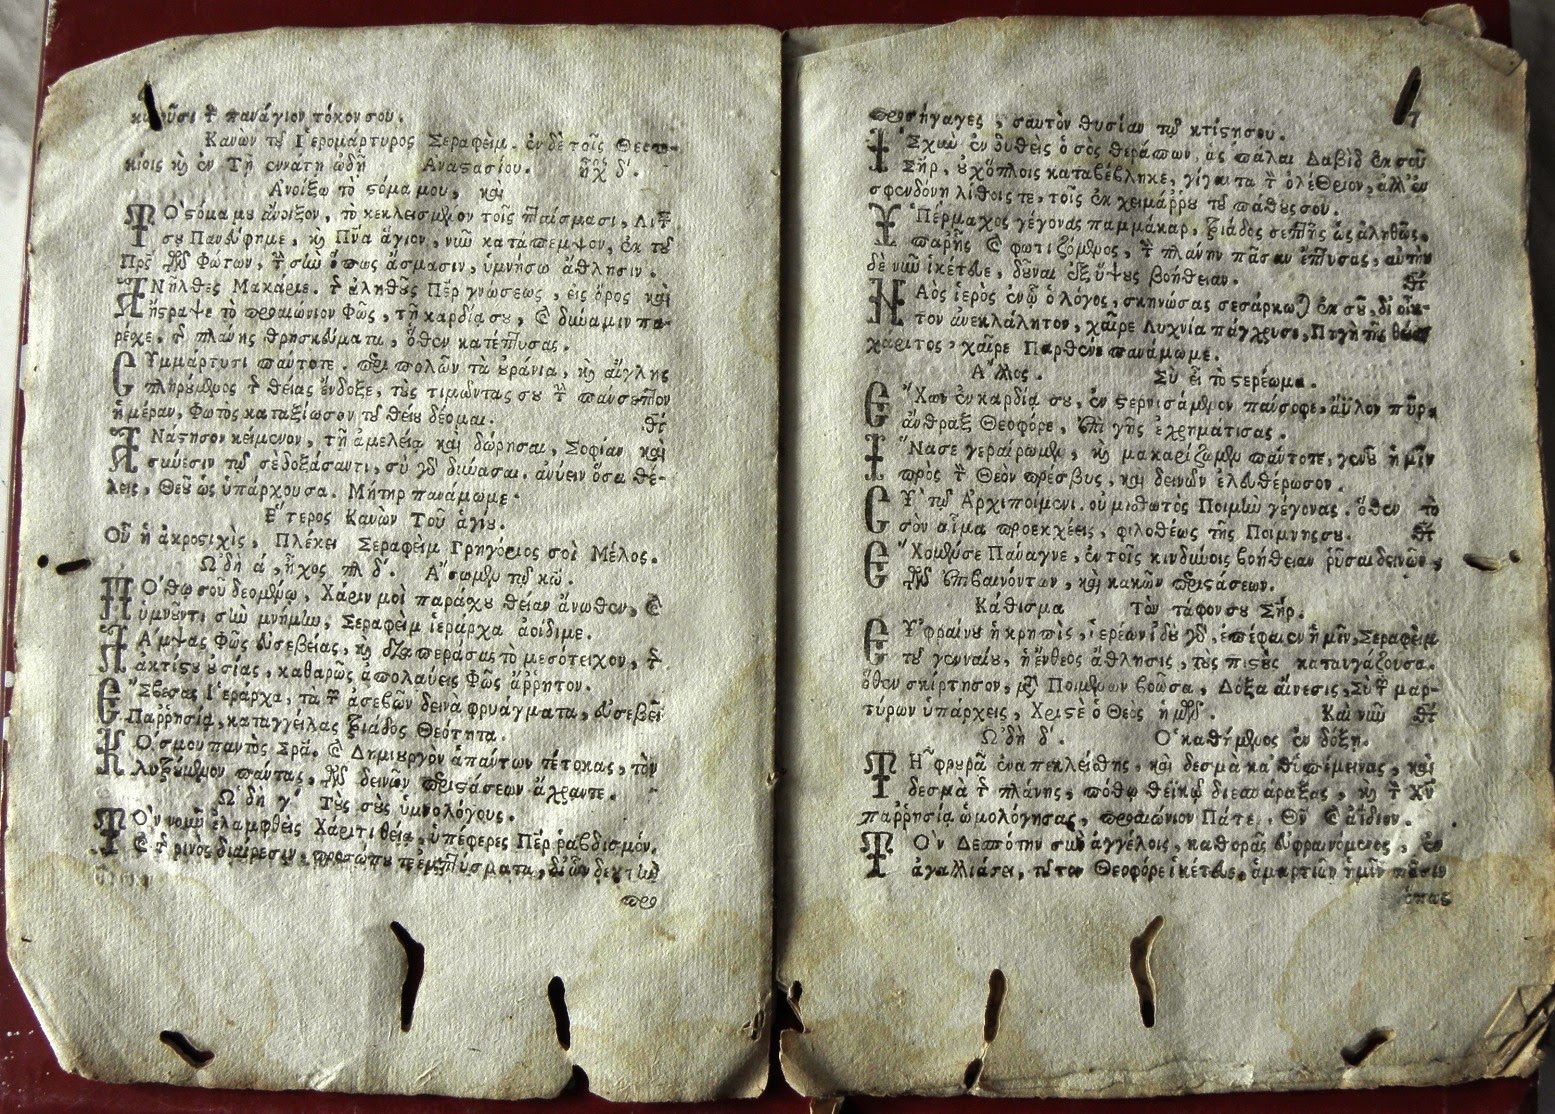 πανάγιον τόκον σου.
Κανὼν τȣ̃ Ἱερομάρτυρος Σεραφεὶμ. ἐν δὲ τοῖς Θεοτο-
κίοις κὴ ἐν Τῇ ἐννάτῃ ὠδῇ Ἀναστασίου. ἦχος δ'.
Ἀνοίξω τὸ στόμα μου, καὶ
ΤΟ στόμα μȣ ἄνοιξον, τὸ κεκλεισμένον τοῖς πταίσμασι,
σȣ Πανεύφημε, κὴ Πνα ἅγιον, νῦν κατάπεμψον, ἐκ τȣ̃
Πρς τῶν Φώτων, τὴν σὴν ὅπως ἄσμασιν, ὑμνήσω ἄθλησιν.
ΑΝῆλθες Μακάριε. τῆς ἀληθȣς Πέρ γνώσεως, εἰς ὄρος καὶ
ἤστραψε τὸ προαιώνιον Φῶς, τῇ καρδίᾳ σȣ, καὶ δύναμιν πα-
ρέχε, τῆς πλάνης θρησκεύματα, ὅθεν κατέπτυσας.
ΣΥμμάρτυσι πάντοτε. περιπολῶν τὰ ȣράνια, κὴ αἴγλης
πληρȣμενος τῆς θείας ἔνδοξε, τȣς τιμῶντας σȣ τὴν πάνσεπτον
ἡμέραν, Φωτὸς καταξίωσον τȣ̃ θείȣ δέομαι.
ΑΝάστησον κείμενον, τῇ ἀμελείᾳ καὶ δώρησαι, Σοφίαν καὶ
σύνεσιν τῷ σὲ δοξάσαντι, σὺ γὰρ δύνασαι. ἀνύειν ὅσα θέ-
λεις, Θεȣ ὡς ὑπάρχουσα. Μήτηρ πανάμωμε.
Ἕτερος Κανὼν Τοῦ ἁγίȣ.
Οὗ ἡ ἀκροστιχὶς, Πλέκει Σεραφεὶμ Γρηγόριος σοὶ Μέλος.
Ὠδὴ ά, ἦχος πλ δ'. Ἄσωμεν τῷ κῳ.
ΠΟθῳ σοῦ δεομένῳ, Χάριν μοὶ παράχȣ θείαν ἄνωθεν, καὶ
ὑμνοῦντι σὴν μνήμην, Σεραφεὶμ ἱεράρχα ἀοίδιμε.
ΛΑμψας Φῶς εὐσεβείας, κὴ διαπεράσας τὸ μεσότειχον, τῆς
ἀκτίστȣ ȣσίας, καθαρῶς ἀπολαύεις Φῶς ἄῤῥητον.
ΕΣβεσας Ἱεράρχα, τὰ τῶν ἀσεβῶν δεινὰ φρυάγματα, εὐσεβεῖ
Παῤῥησίᾳ, καταγγείλας Τριάδος Θεότητα.
ΚΟσμου παντὸς Σρα. καὶ Δημιουργὸν ἁπάντων τέτοκας, τὸν
λυτρȣμενον πάντας, τῶν δεινῶν περιστάσεων ἄχραντε.
Ὠδὴ γ'. Τȣς σȣς ὑμνολόγους.
ΤΟν νομῇ ἐλαμφθεὶς Χάριτι θείᾳ, ὑπέφερες Πέρ ῥαβδισμόν.
καὶ ῥινὸς διαίρεσιν, προσώπȣ τε ἐμπτύσματα, δι' ὧν δευτέραν
προ
προσήγαγες, σαυτὸν θυσίαν τῷ κτίστῃ σου.
ἸΣχύϊ ἐνδυθεὶς ὁ σὸς θεράπων, ὡς πάλαι Δαβὶδ ἐκ σοῦ
Σῆρ, ȣχ ὅπλοις καταβέβληκε, γίγαντα τὸν ὀλέθριον, ἀλλ' ἐν
σφενδόνῃ λίθοις τε, τοῖς ἐκ χειμάῤῥȣ τȣ̃ πάθȣς σου.
ὙΠέρμαχος γέγονας παμμάκαρ, Τριάδος σεπτῆς ὡς ἀληθῶς,
παρ' ἧς καὶ φωτιζόμενος, τὴν πλάνην πᾶσαν ἔπτυσας, αὐτὴν
δὲ νῦν ἱκέτευε, δοῦναι ἐξ ὕψȣς βοήθειαν.
ΝΑὸς ἱερὸς ἐν ᾧ ὁ λόγος, σκηνώσας σεσάρκωται ἐκ σȣ̃, δι' οἶκ-
τον ἀνεκλάλητον, χαῖρε Λυχνία πάγχρυσε, Πηγὴ τῆς θείας
χάριτος, χαῖρε Παρθένε πανάμωμε.
Ἄλλος. Σὺ εἶ τὸ στερέωμα.
ἜΧων ἐν καρδίᾳ σȣ, ἐνστερνισάμενον πάνσοφε, ἄϋλον πῦρ,
ἄνθραξ Θεοφόρε, ἐπὶ γῆς ἐχρημάτισας.
ἽΝα σε γεραίρωμεν, κὴ μακαρίζωμεν πάντοτε, γενοῦ ἡμῖν
πρὸς τὸν Θεὸν πρέσβυς, καὶ δεινῶν ἐλευθέρωσον.
ΣΥ τῷ Ἀρχιποίμενι. οὐ μισθωτὸς Ποιμὴν γέγονας. ὅθεν τὸ
σὸν αἷμα προεκχέεις, φιλοθέως τῆς Ποίμνης σου.
ἜΧομέν σε Πάναγνε, ἐν τοῖς κινδύνοις βοήθειαν ῥῦσαι δεινῶν,
τῶν ἐπιβαινόντων, καὶ κακῶν περιστάσεων.
Κάθισμα Τὸν τάφον σου Σῆρ.
ΕΥφραίνου ἡ κρηπὶς, ἱερέων ἰδοὺ γὰρ, ἐπέφανεν ἡμῖν, Σεραφεὶμ
τȣ̃ γενναίου, ἡ ἔνθεος ἄθλησις, τȣς πιστȣς καταυγάζουσα.
ὅθεν σκίρτησον, μετὰ Ποιμένων βοῶσα, Δόξα αἴνεσις, Σὺ τῶν μαρ-
τύρων ὑπάρχεις, Χριστὲ ὁ Θεὸς ἡμῶν. Καὶ νῦν
Ὠδὴ δ'. Ὁ καθήμενος ἐν δόξῃ.
ΤΗ φρȣρᾷ ἐναπεκλείσθης, καὶ δεσμὰ καθυπέμεινας, καὶ
δεσμὰ τῆς πλάνης, πόθῳ θεϊκῷ διεσπάραξας, κὴ τὸν Χν
παῤῥησίᾳ ὡμολόγησας, προαιώνιον Πάτερ, Θν καὶ ἀΐδιον.
ΤΟν Δεσπότην σὺν ἀγγέλοις, καθορᾷς εὐφραινόμενος, ἐν
ἀγαλλιάσει, τοῦτον Θεοφόρε ἱκέτευε, ἁμαρτιῶν ἡμῖν πᾶσιν